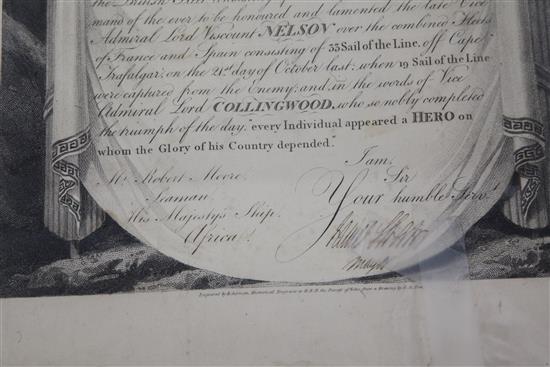 mand of the ever to be honoured and lamented the late Vice
Admiral Lord Viscount NELSON over the combined Fleets
of France and Spain consisting of 33 Sail of the Line, off Cape
Trafalgar, on the 21st day of October last; when 19 Sail of the Line
were captured from the Enemy; and, in the words of Vice
Admiral Lord COLLINGWOOD, who so nobly completed
the triumph of the day, "every Individual appeared a HERO on
whom the Glory of his Country depended."
I am,
Sir
Your humble Servt.
Mr. Robert Moore,
Seaman,
His Majestys Ship,
Africa.
Mayor